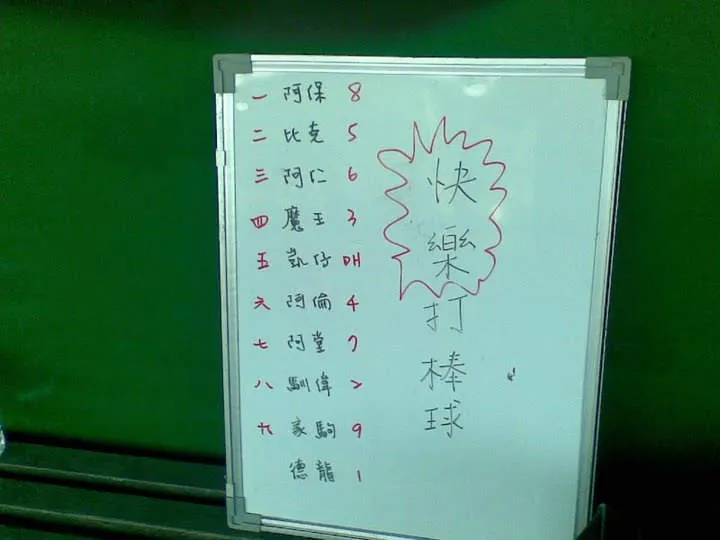 一 阿保 8
二 比克 5
三 阿仁 6
四 魔王 3
五 凱仔 DH
六 阿倫 4
七 阿堂 7
八 馴偉 2
九 家駒 9
德龍 1
快樂打棒球